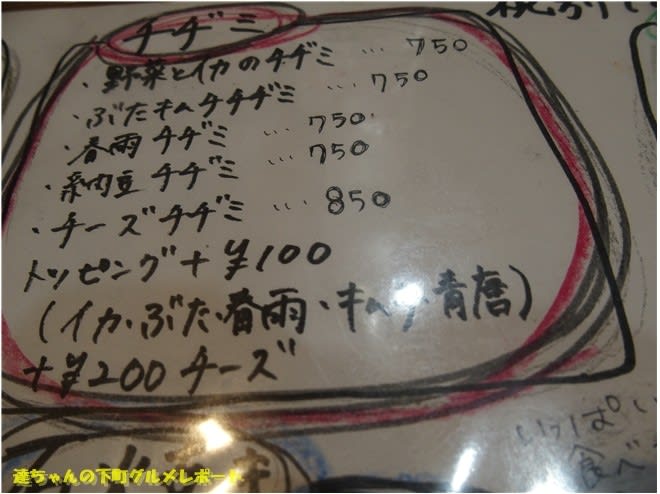 チヂミ
・野菜とイカのチヂミ … 750
・ぶたキムチチヂミ … 750
・春雨チヂミ … 750
・納豆チヂミ … 750
・チーズチヂミ … 850
トッピング+¥100
(イカ・ぶた・春雨・キムチ・青唐)
+¥200 チーズ
いっぱい
食べ
達ちゃんの下町グルメレポート